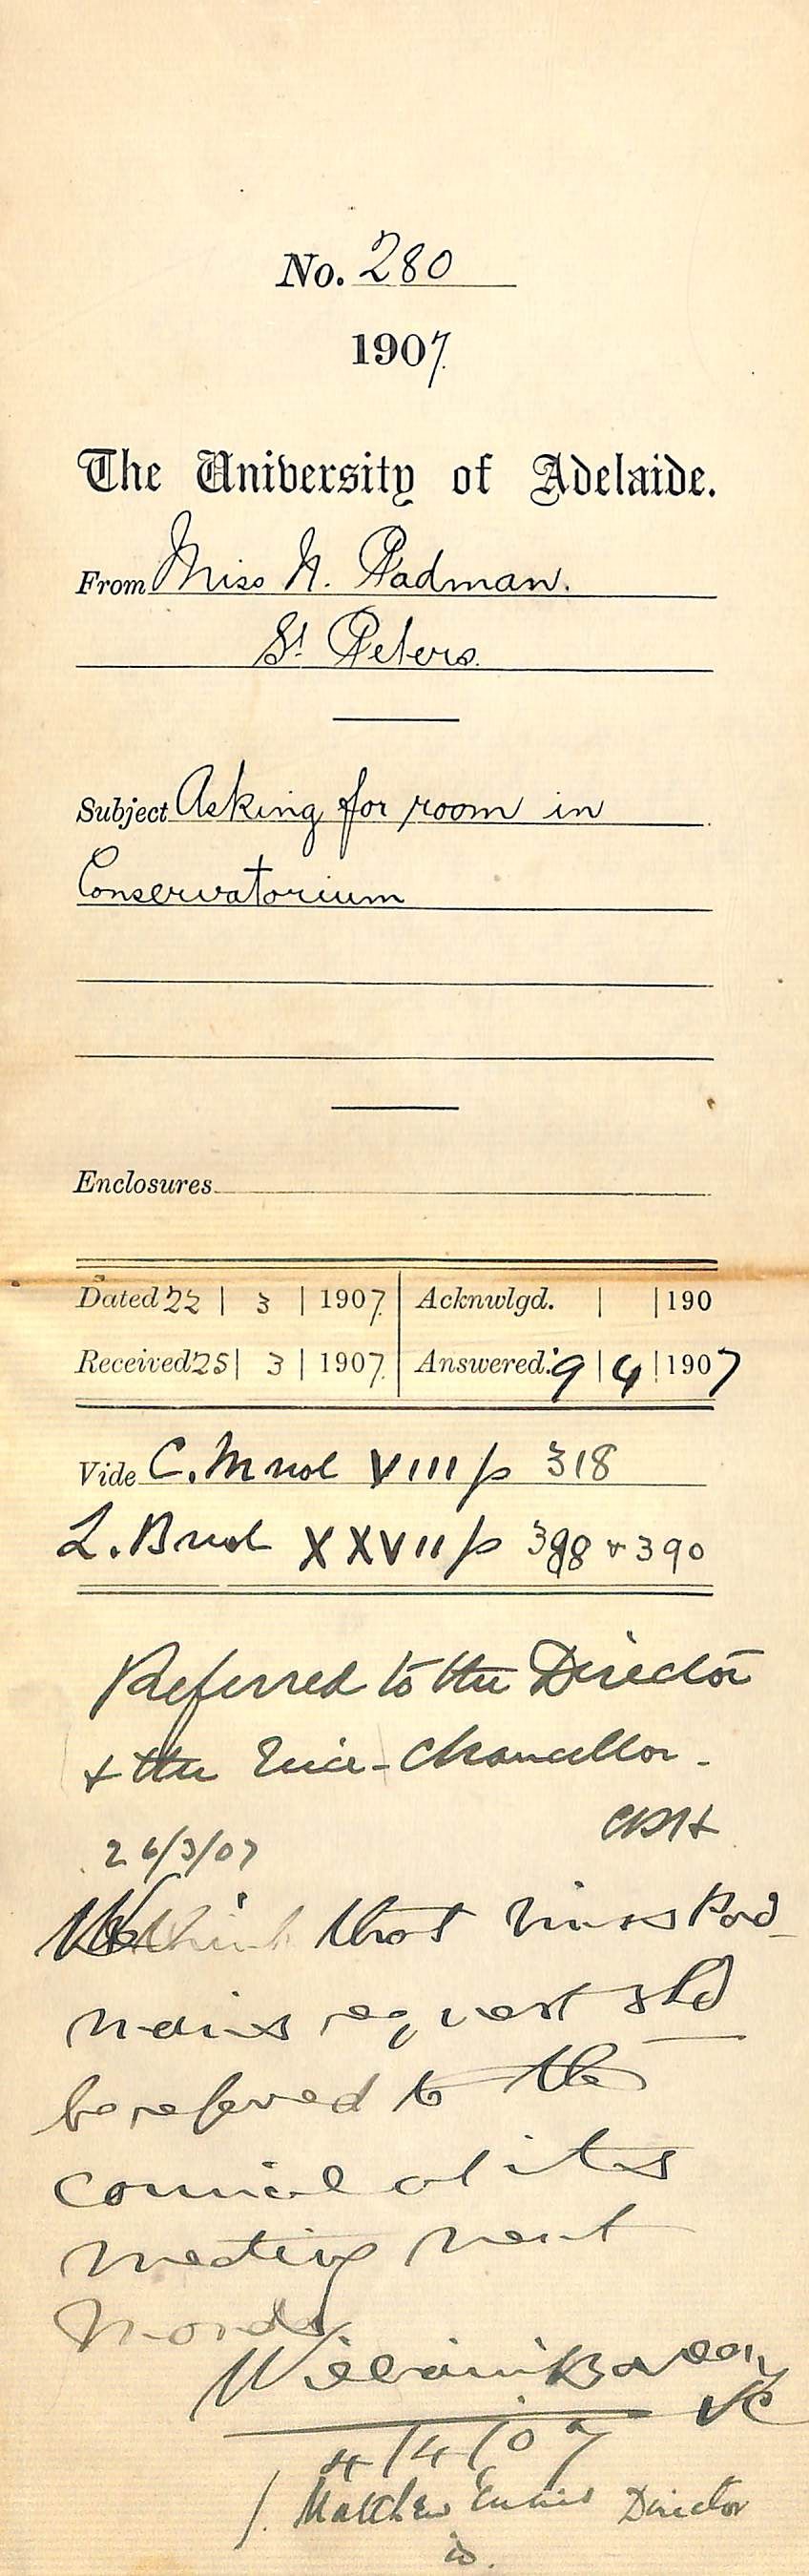 No. 280
1907.
The University of Adelaide.
From Miss N. Padman.
St Peters.
Subject Asking for room in
Conservatorium
Enclosures
Dated 22 | 3 | 1907. Acknwlgd. | | 190
Received 25 | 3 | 1907. Answered. 9 | 4 | 1907
Vide C. M vol VIII p 318
L. B vol XXVII p 398 & 390
Referred to the Director
& the Vice-Chancellor.
CRH
26/3/07
We think that Miss Pad-
man's request shld
be referred to the
council at its
meeting next
Monday
William Barlow
VC
4/4/07
J. Matthew Ennis Director